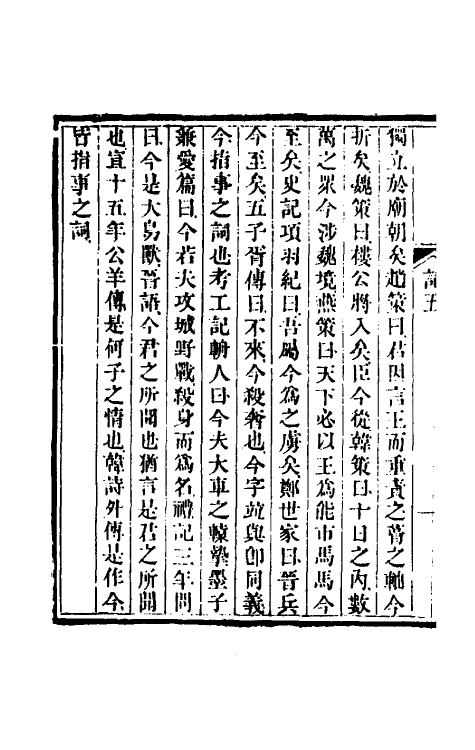 獨立於廟朝矣趙策曰君因言王而重責之葺之軸今
折矣魏策曰樓公將入矣臣今從韓策曰十日之內數
萬之眾今涉魏境燕策曰天下必以王爲能市馬馬今
至矣史記項羽紀曰吾屬今爲之虜矣鄭世家曰晉兵
今至矣五子胥傳曰不來今殺奢也今字竝與卽同義
今指事之詞也考工記輈人曰今夫大車之轅摯墨子
兼愛篇曰今若夫攻城野戰殺身而爲名禮記三年問
曰今是大鳥獸晉語今君之所聞也猶言是君之所聞
也宣十五年公羊傳是何子之情也韓詩外傳是作今
皆指事之詞
記五
一